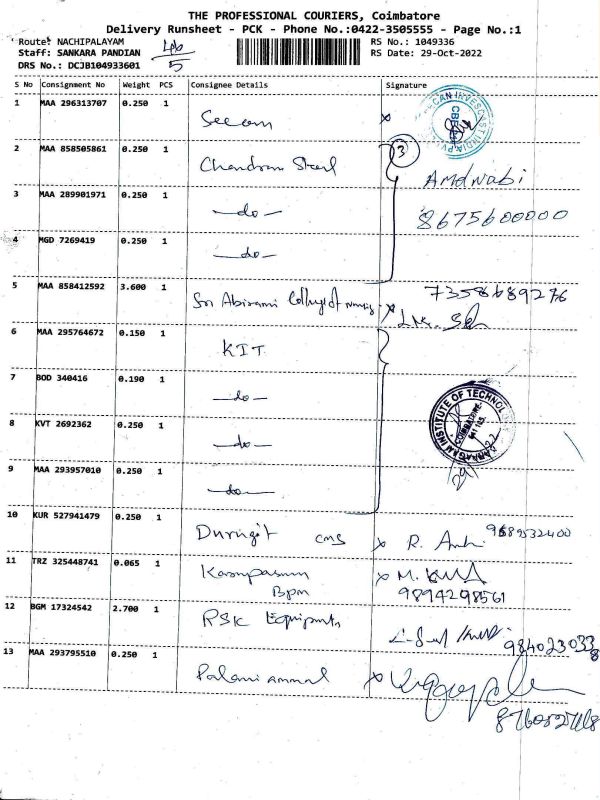 THE PROFESSIONAL COURIERS, Coimbatore
Delivery Runsheet - PCK - Phone No.:0422-3505555 - Page No.:1
Route: NACHIPALAYAM
RS No.: 1049336
Staff: SANKARA PANDIAN
RS Date: 29-Oct-2022
DRS No.: DCJB104933601
5
S No Consignment No Weight PCS Consignee Details Signature
1 MAA 296313707 0.250 1 x
2 MAA 858505861 0.250 1 Chandran Steel 3
3 MAA 289901971 0.250 1 —do— 8675600000
4 MGD 7269419 0.250 1 —do—
5 MAA 858412592 3.600 1 Sri Abirami College of x 7358689276
6 MAA 295764672 0.150 1 KIT
7 BOD 340416 0.190 1 —do—
8 KVT 2692362 0.250 1 —do—
9 MAA 293957010 0.250 1 —do—
10 KUR 527941479 0.250 1 cms x R.
11 TRZ 325448741 0.065 1 x M.
Bpm 9894298561
12 BGM 17324542 2.700 1 RSK Equipments
13 MAA 293795510 0.250 1 Palaniammal x